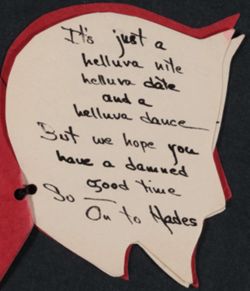 It's just a
helluva nite
helluva date
and a
helluva dance—
But we hope you
have a damned
good time
So —
On to Hades